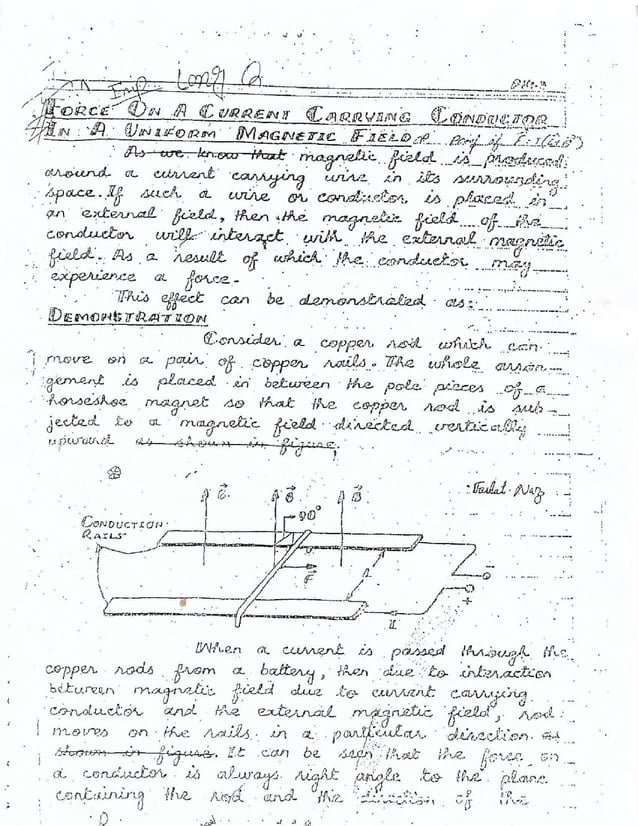 Imp Long Q
FORCE ON A CURRENT CARRYING CONDUCTOR
IN A UNIFORM MAGNETIC FIELD
As we know that magnetic field is produced
around a current carrying wire in its surrounding
space. If such a wire or conductor is placed in
an external field, then the magnetic field of the
conductor will interact with the external magnetic
field. As a result of which the conductor may
experience a force.
This effect can be demonstrated as:
DEMONSTRATION
Consider a copper rod which can
move on a pair of copper rails. The whole arran-
gement is placed in between the pole pieces of a
horseshoe magnet so that the copper rod is sub-
jected to a magnetic field directed vertically
upward as shown in figure.
B B B
90°
CONDUCTION
RAILS
F
-
+
I
When a current is passed through the
copper rods from a battery, then due to interaction
between magnetic field due to current carrying
conductor and the external magnetic field, rod
moves on the rails in a particular direction as
shown in figure. It can be seen that the force on
a conductor is always right angle to the plane
containing the rod and the direction of the